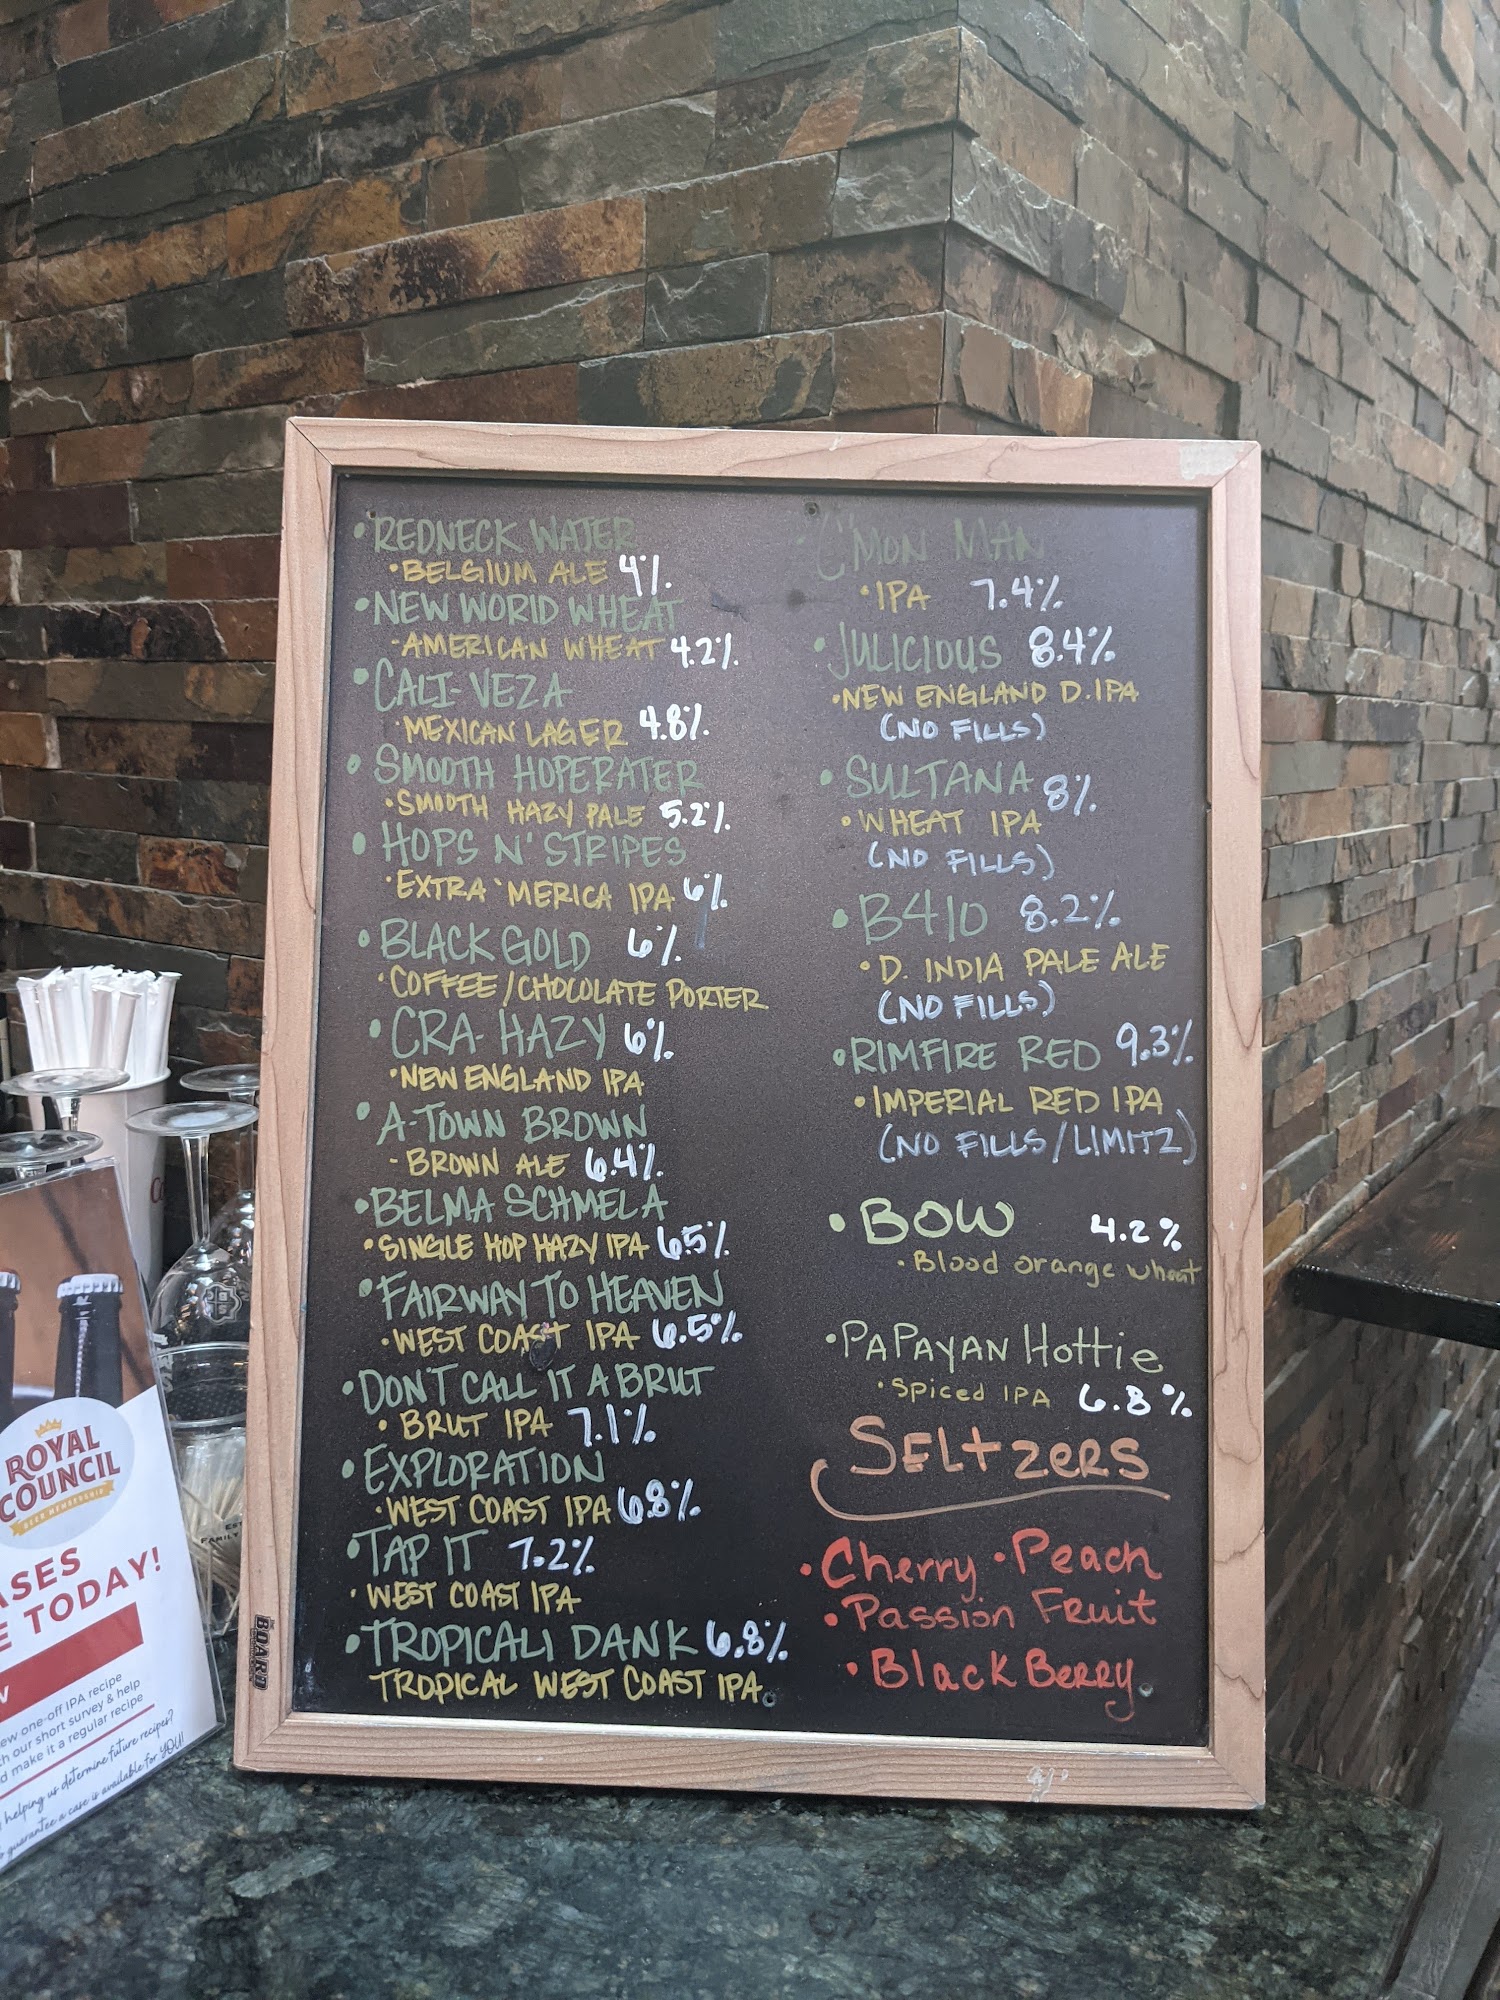 • REDNECK WATER
• BELGIUM ALE 4%
• NEW WORLD WHEAT
- AMERICAN WHEAT 4.2%
• CALI-VEZA
• MEXICAN LAGER 4.8%
• SMOOTH HOPERATER
• SMOOTH HAZY PALE 5.2%
• HOPS N' STRIPES
• EXTRA 'MERICA IPA 6%
• BLACK GOLD 6%
• COFFEE/CHOCOLATE PORTER
• CRA-HAZY 6%
• NEW ENGLAND IPA
• A-TOWN BROWN
- BROWN ALE 6.4%
• BELMA SCHMELA
• SINGLE HOP HAZY IPA 6.5%
• FAIRWAY TO HEAVEN
• WEST COAST IPA 6.5%
• DON'T CALL IT A BRUT
• BRUT IPA 7.1%
• EXPLORATION
• WEST COAST IPA 6.8%
• TAP IT 7.2%
• WEST COAST IPA
• TROPICALI DANK 6.8%
TROPICAL WEST COAST IPA
• C'MON MAN
• IPA 7.4%
• JULICIOUS 8.4%
• NEW ENGLAND D.IPA
(NO FILLS)
• SULTANA 8%
• WHEAT IPA
(NO FILLS)
• B410 8.2%
• D. INDIA PALE ALE
(NO FILLS)
• RIMFIRE RED 9.3%
• IMPERIAL RED IPA
(NO FILLS/LIMIT2)
• BOW 4.2%
• Blood orange wheat
• PAPAYAN Hottie
• Spiced IPA 6.8%
SELtzeRS
• Cherry • Peach
• Passion Fruit
• BlackBerry
THE BOARD
ROYAL
COUNCIL
BEER MEMBERSHIP
ASES
E TODAY!
W
ew one-off IPA recipe
ch our short survey & help
d make it a regular recipe
helping us determine future recipes?
guarantee a case is available for YOU!
EST
FAMILY